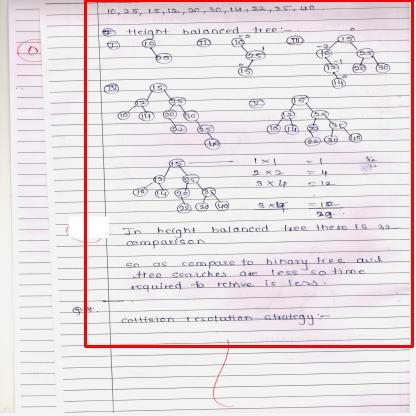 10, 25, 15, 12, 20, 30, 14, 22, 35, 40
Height balanced tree:-
I II III
10 25
10 -2 25 1 15 0
15 0 -2 10 25 12 -1 20 30 14 0
IV V
15 12 25 10 14 20 30 22 35 40
15 12 25 10 14 20 35 22 30 40
15 12 25 10 14 20 35 22 30 40
1 x 1 = 1
2 x 2 = 4
3 x 4 = 12
In height balanced tree there is 32
comparison
so as compare to binary tree and
tree searches are less so time
required to is less.
Q 3.
collision resolution strategy:-